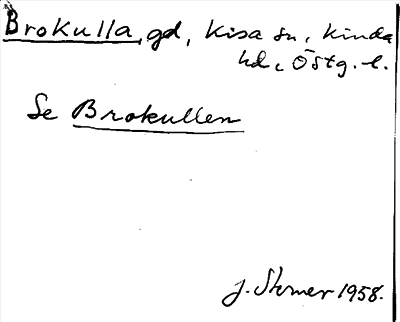 Brokulla, gd, Kisa sn, Kinda
hd, Östg. l.
Se Brokullen
J. Sterner 1958.